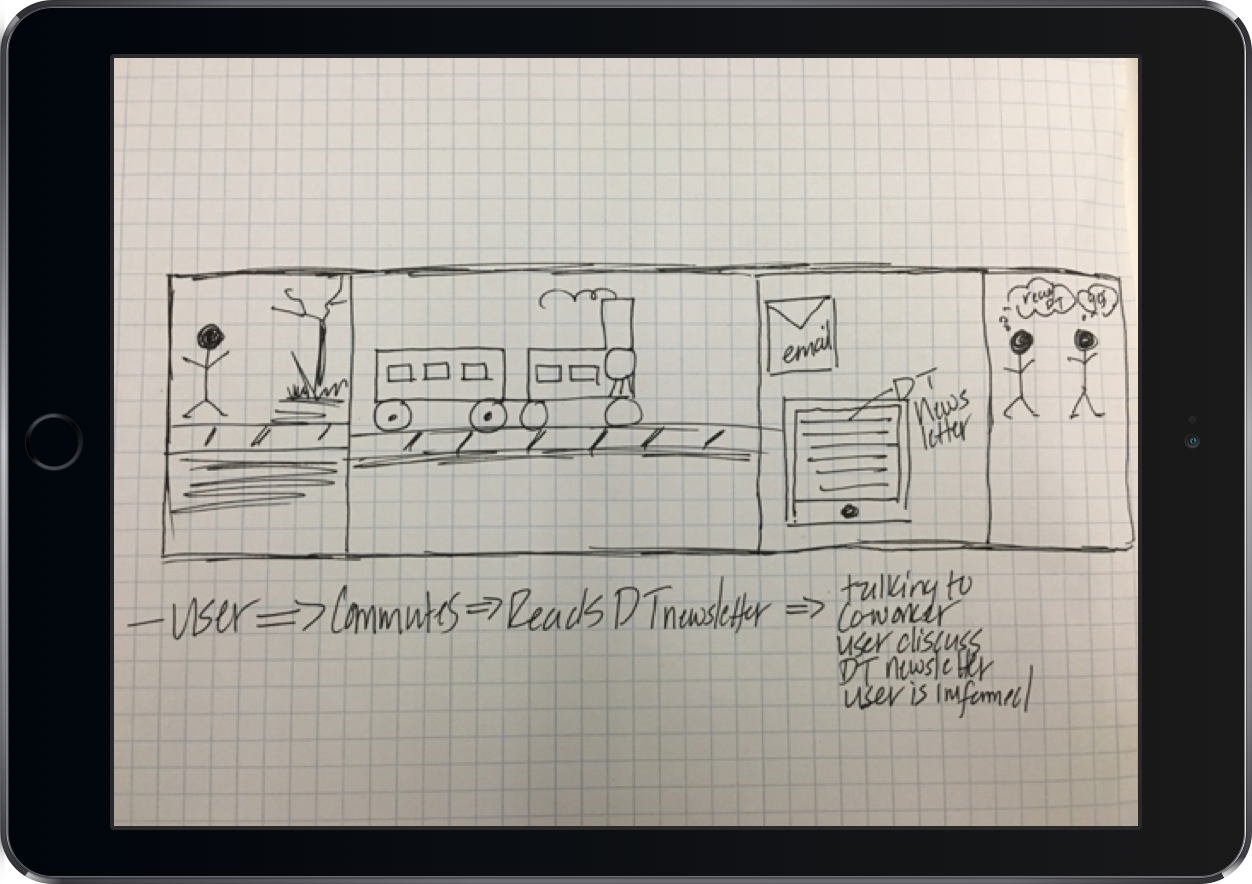 read
DT
email
DT
News
letter
– User => Commutes => Reads DT newsletter =>
talking to
Coworker
user discuss
DT newsletter
user is informed